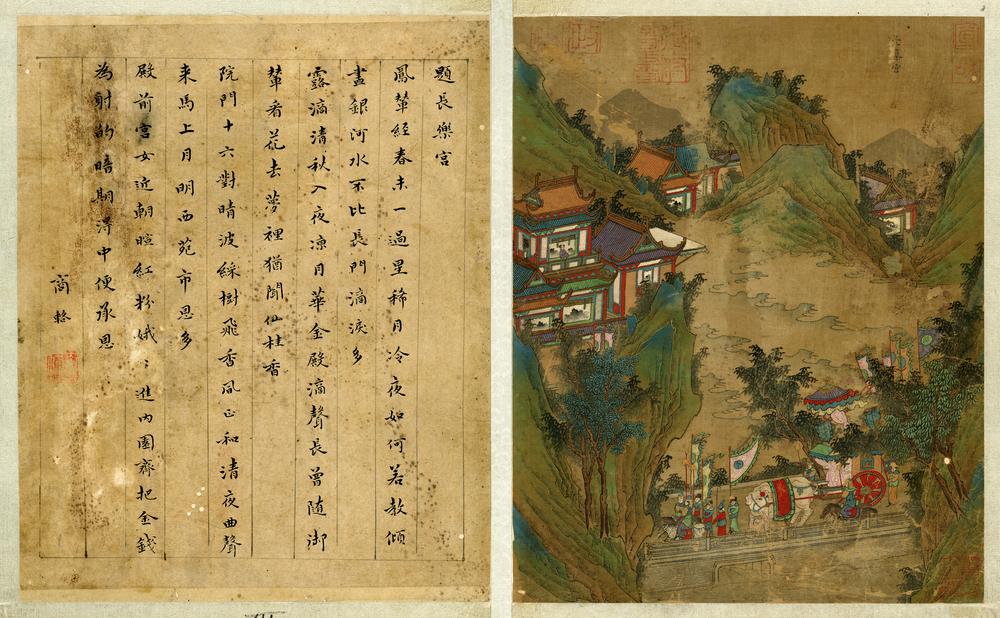 題長樂宮
鳳輦經春未一過星稀月冷夜如何若教傾
盡銀河水不比長門滴淚多
露滴清秋入夜凉月華金殿滴聲長曾隨御
輦看花去夢裡猶聞仙桂香
院門十六對晴波綵樹飛香風正和清夜曲聲
来馬上月明西苑市恩多
殿前宮女近朝暄紅粉娥〻進內園齊把金錢
為射的暗期得中便承恩
商輅